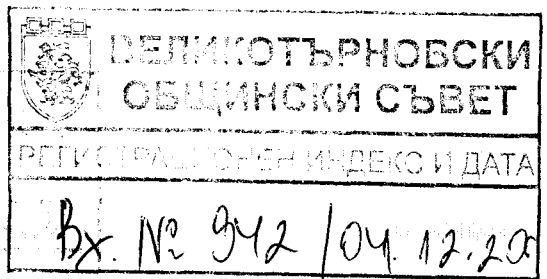 ВЕЛИКОТЪРНОВСКИ
ОБЩИНСКИ СЪВЕТ
РЕГИСТРАЦИОНЕН ИНДЕКС И ДАТА
Вх. № 942 / 04. 12. 20